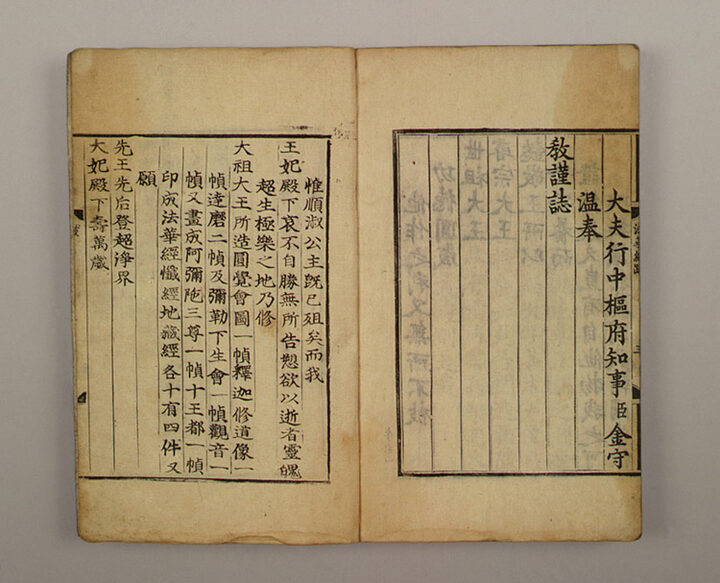 大夫行中樞府知事臣金守
溫奉
敎謹誌
惟順淑公主旣已殂矣而我
王妃殿下哀不自勝無所告愬欲以逝者靈魄
超生極樂之地乃修
大祖大王所造圓覺會圖一幀釋迦修道像一
幀達磨二幀及彌勒下生會一幀觀音一
幀又畫成阿彌陁三尊一幀十王都一幀
印成法華經懺經地藏經各十有四件又
願
先王先后登超淨界
大妃殿下壽萬歲